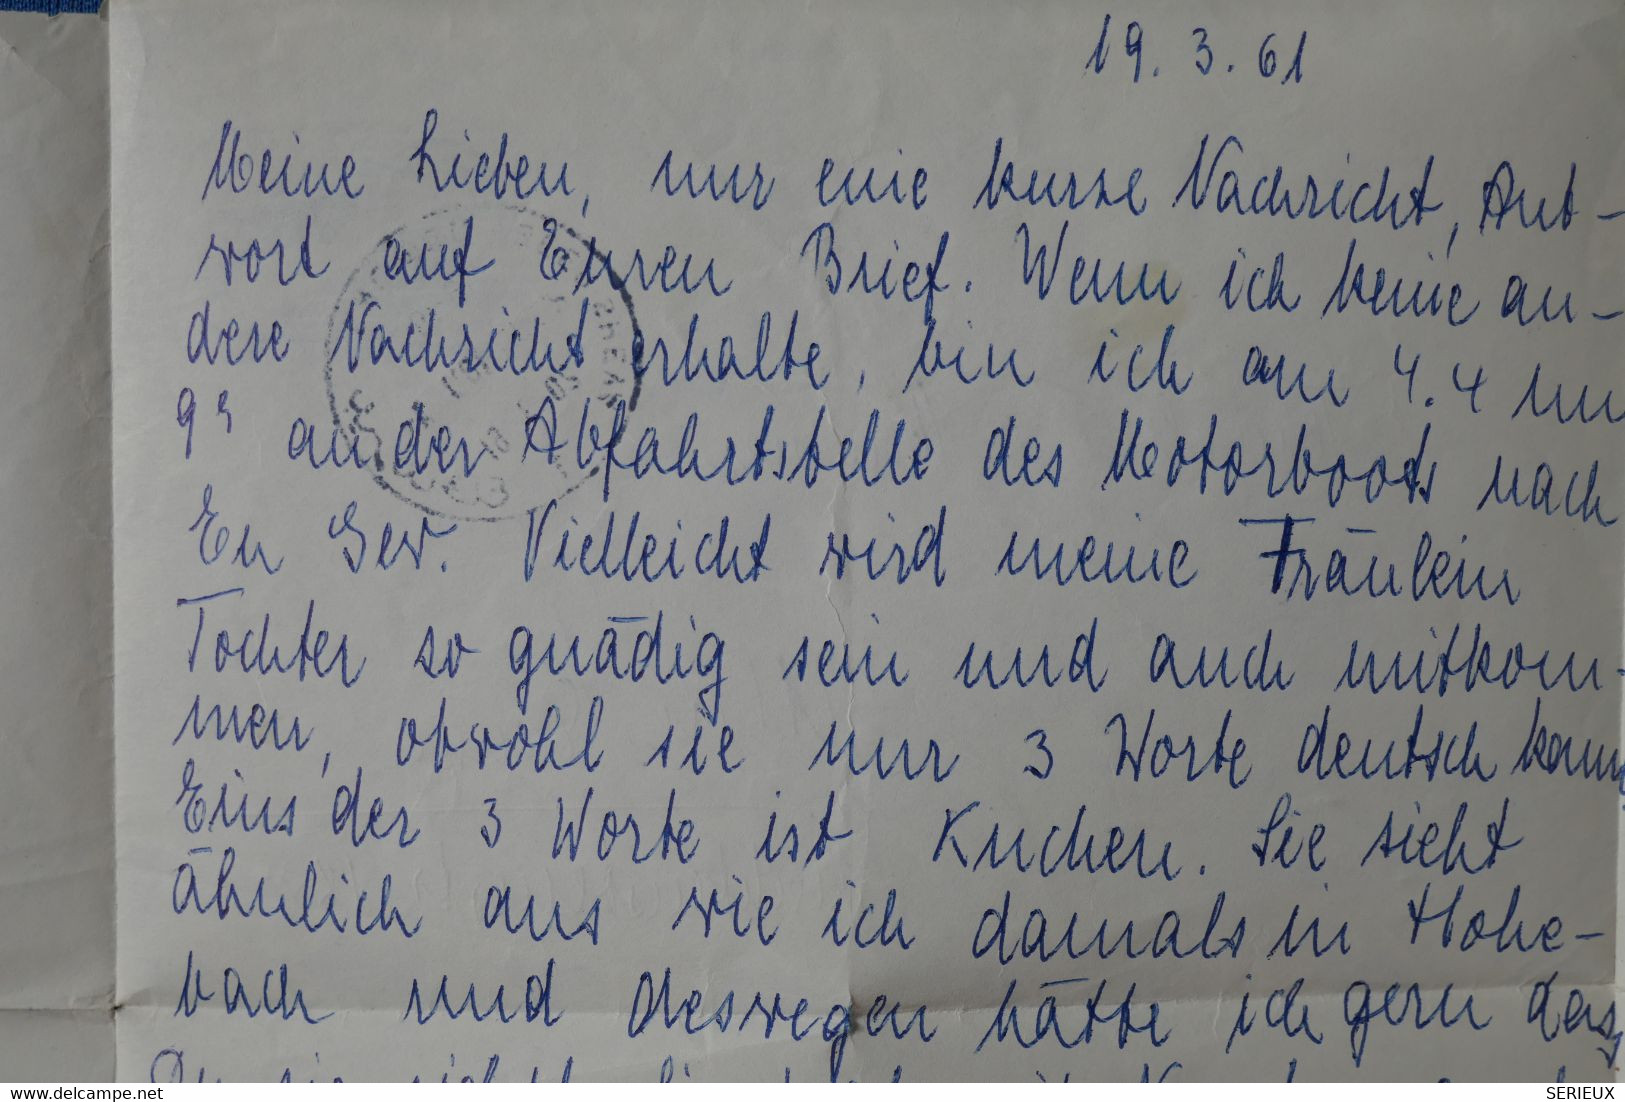 19. 3. 61
Meine Lieben, nur eine kurze Nachricht, Ant-
wort auf Euren Brief. Wenn ich keine an-
dere Nachricht erhalte, bin ich am 4.4 um
9 an der Abfahrtsstelle des Motorboots nach
En Gev. Vielleicht wird meine Fräulein
Tochter so gnädig sein und auch mitkom-
men, obwohl sie nur 3 Worte deutsch kann
Eins der 3 Worte ist Kuchen. Sie sieht
ähnlich aus wie ich damals in Hohe-
bach und deswegen hätte ich gern dass
Du sie
delcampe.net
SERIEUX